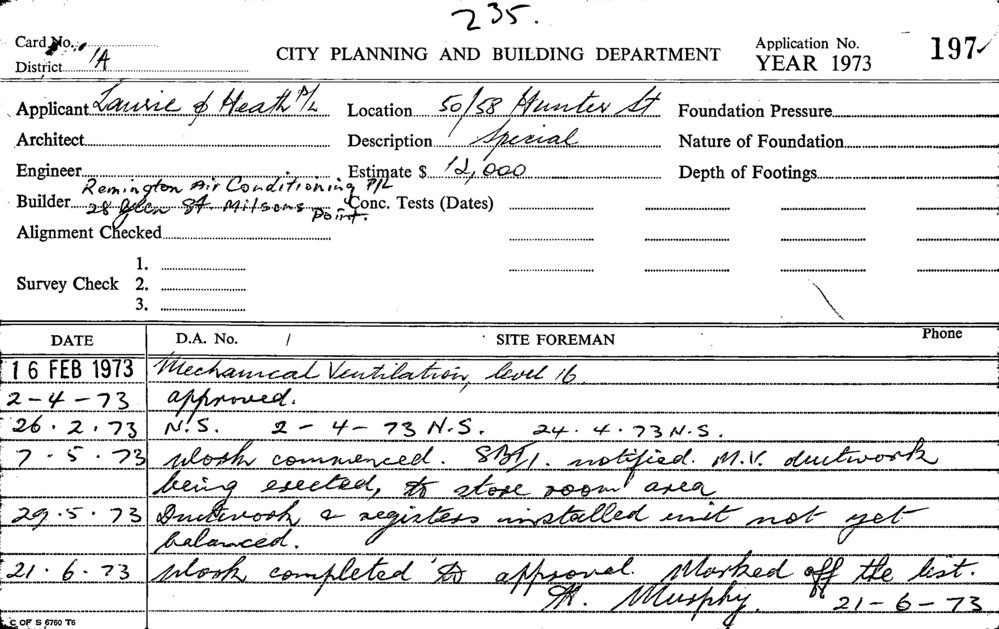 235.
Card No.
District 1A
CITY PLANNING AND BUILDING DEPARTMENT
Application No. 197
YEAR 1973
Applicant Laurie & Heath P/L Location 50/58 Hunter St Foundation Pressure
Architect Description Special Nature of Foundation
Engineer Estimate $ 12,000 Depth of Footings
Remington Air Conditioning P/L
Builder 28 Glen St. Milsons Point. Conc. Tests (Dates)
Alignment Checked
1.
Survey Check 2.
3.
DATE D.A. No. / SITE FOREMAN Phone
16 FEB 1973 Mechanical Ventilation, level 16
2-4-73 approved.
26.2.73 N.S. 2-4-73 N.S. 24.4.73 N.S.
7.5.73 Work commenced. notified. M.V. ductwork
being erected, to store room area
29.5.73 Ductwork & registers installed unit not yet
balanced.
21.6.73 Work completed to approval. Marked off the list.
Murphy. 21-6-73
C OF S 6760 T6